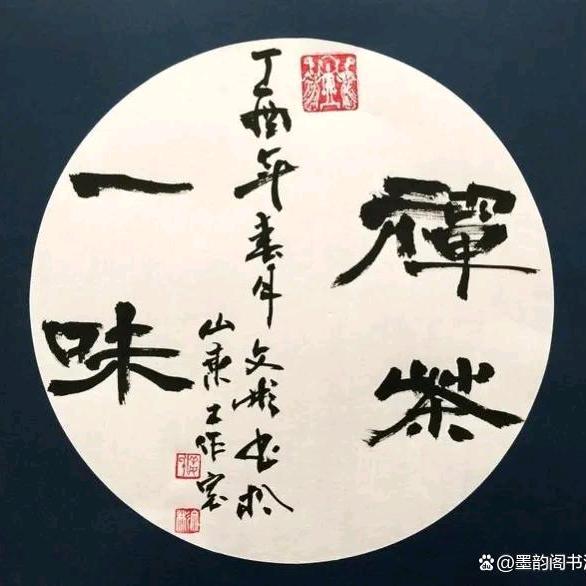 禪茶
丁酉年春月文彬书於
山工作室
一味
@墨韵阁书